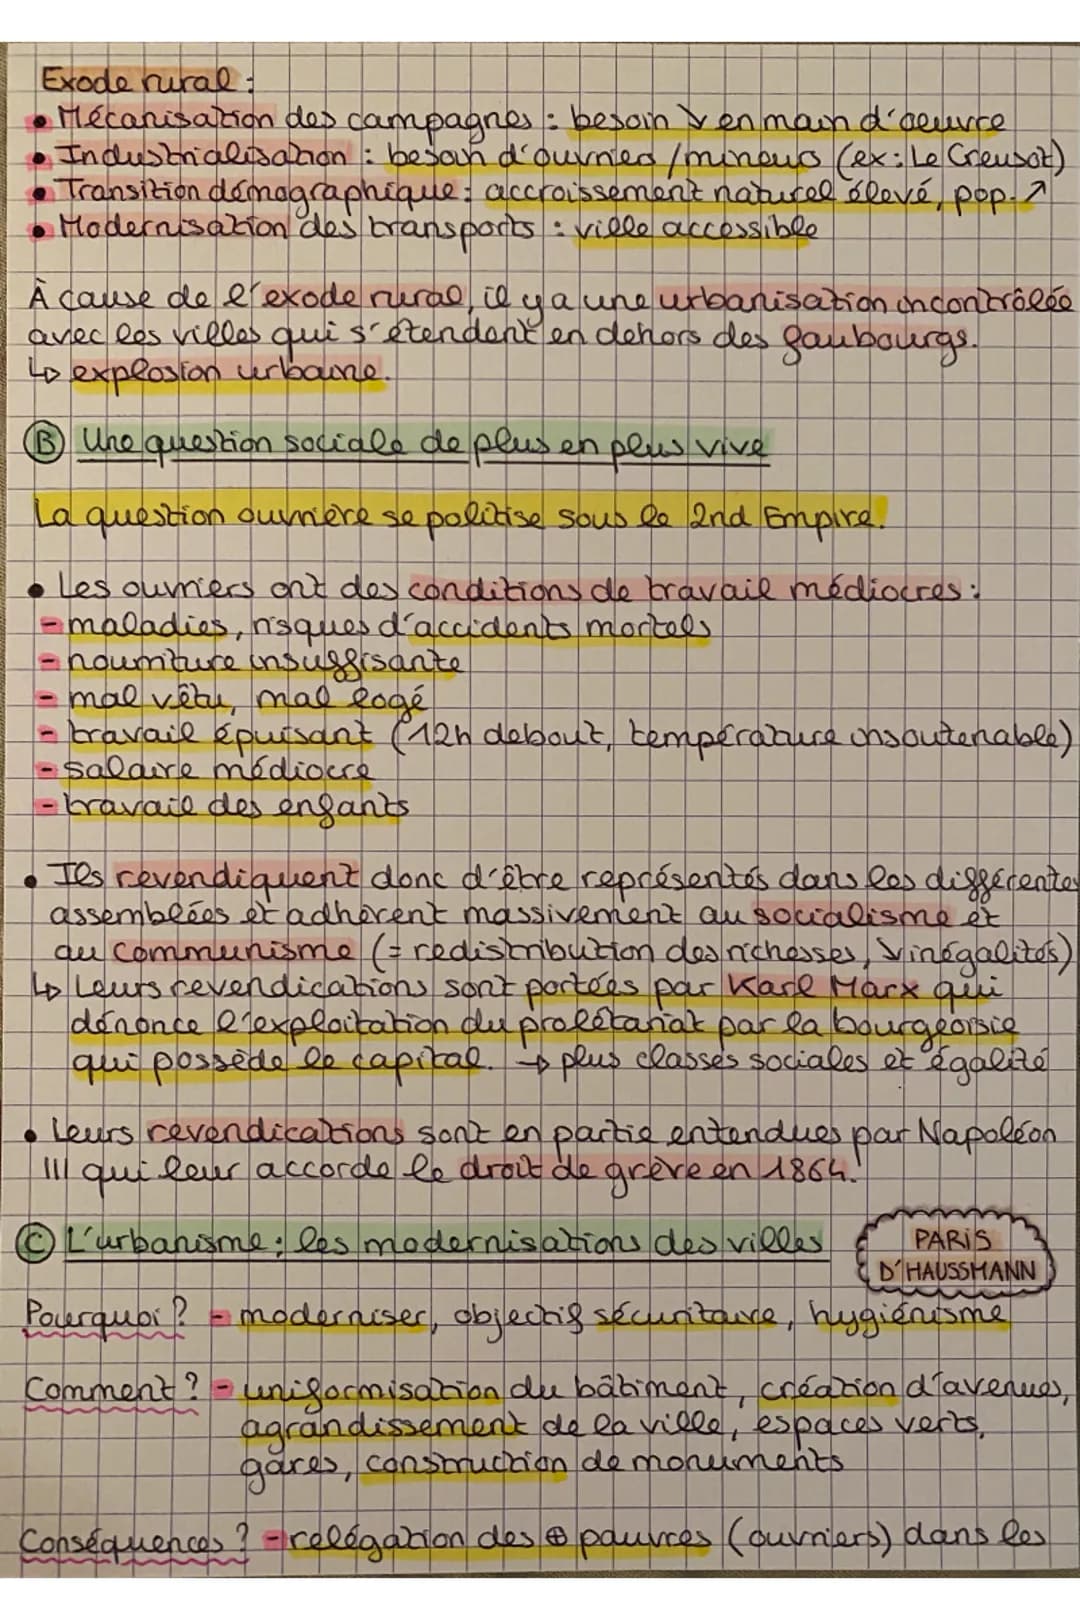 Exode rural :
• Mécanisation des campagnes : besoin ↘ en main d'oeuvre
• Industrialisation : besoin d'ouvriers / mineurs (ex : Le Creusot)
• Transition démographique : accroissement naturel élevé, pop. ↗
• Modernisation des transports : ville accessible
À cause de l'exode rural, il y a une urbanisation incontrôlée
avec les villes qui s'étendent en dehors des faubourgs.
↳ explosion urbaine.
Ⓑ Une question sociale de plus en plus vive
La question ouvrière se politise sous le 2nd Empire.
• Les ouvriers ont des conditions de travail médiocres :
- maladies, risques d'accidents mortels
- nourriture insuffisante
- mal vêtu, mal logé
- travail épuisant (12h debout, température insoutenable)
- salaire médiocre
- travail des enfants
• Ils revendiquent donc d'être représentés dans les différentes
assemblées et adhèrent massivement au socialisme et
au communisme (= redistribution des richesses, ↘ inégalités)
↳ Leurs revendications sont portées par Karl Marx qui
dénonce l'exploitation du prolétariat par la bourgeoisie
qui possède le capital. → plus classes sociales et égalité
• Leurs revendications sont en partie entendues par Napoléon
III qui leur accorde le droit de grève en 1864.
Ⓒ L'urbanisme : les modernisations des villes
PARIS
D'HAUSSMANN
Pourquoi ? - moderniser, objectif sécuritaire, hygiénisme
Comment ? - uniformisation du bâtiment, création d'avenues,
agrandissement de la ville, espaces verts,
gares, construction de monuments
Conséquences ? - relégation des ⊕ pauvres (ouvriers) dans les